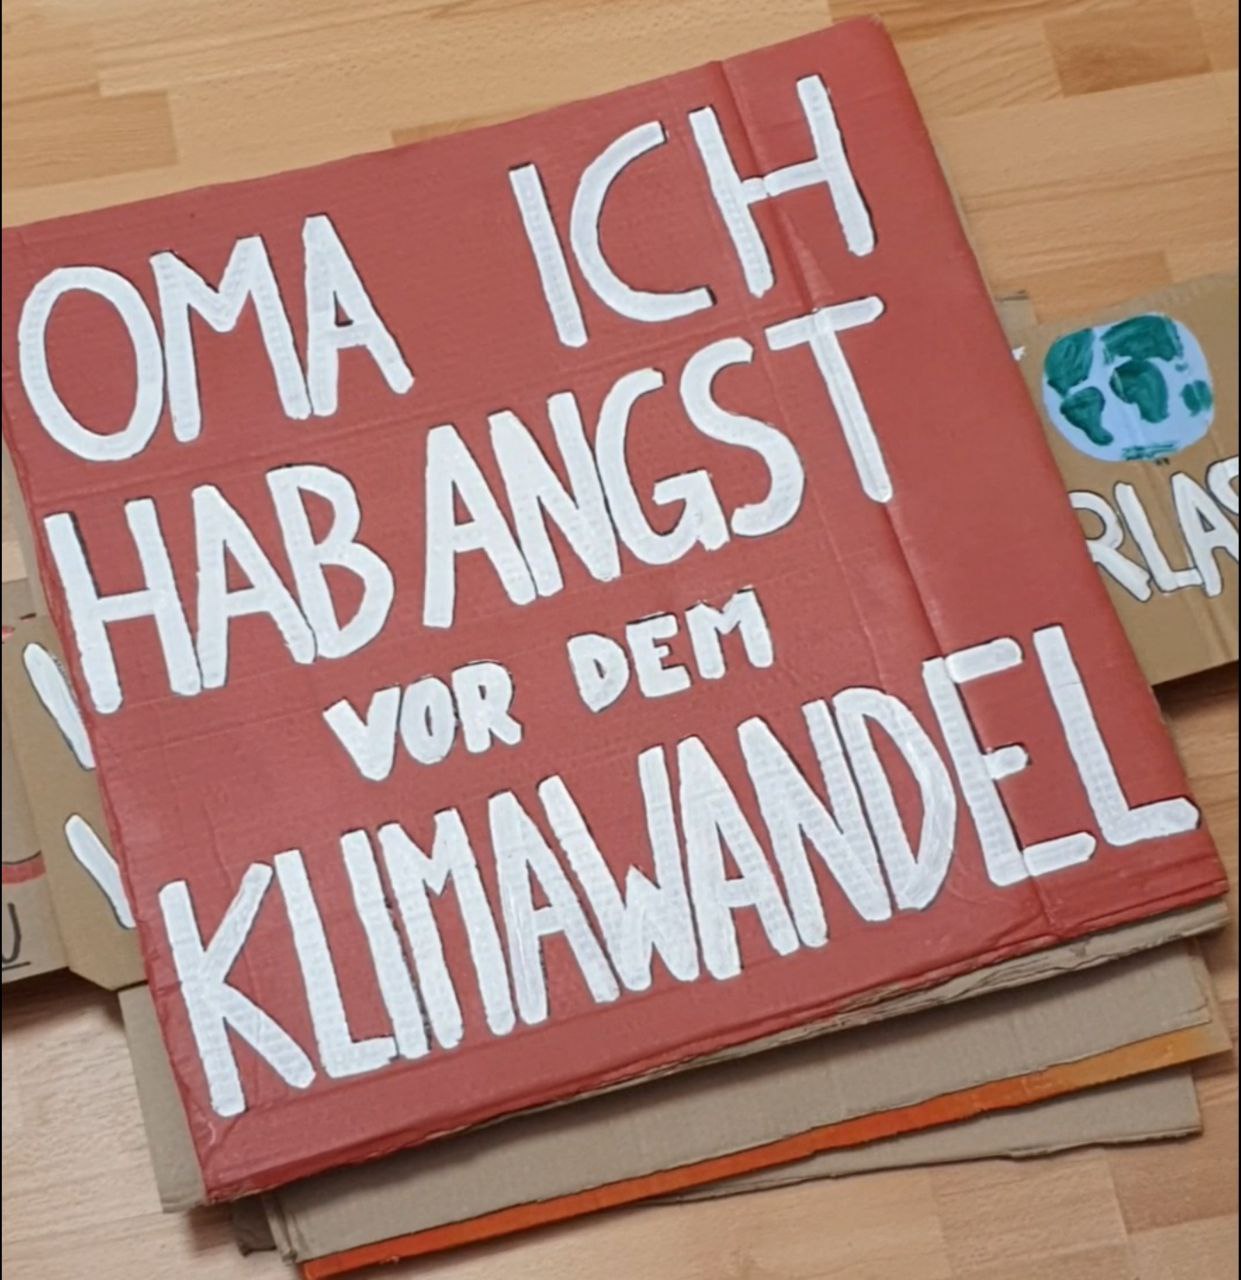 OMA ICH
HAB ANGST
VOR DEM
KLIMAWANDEL